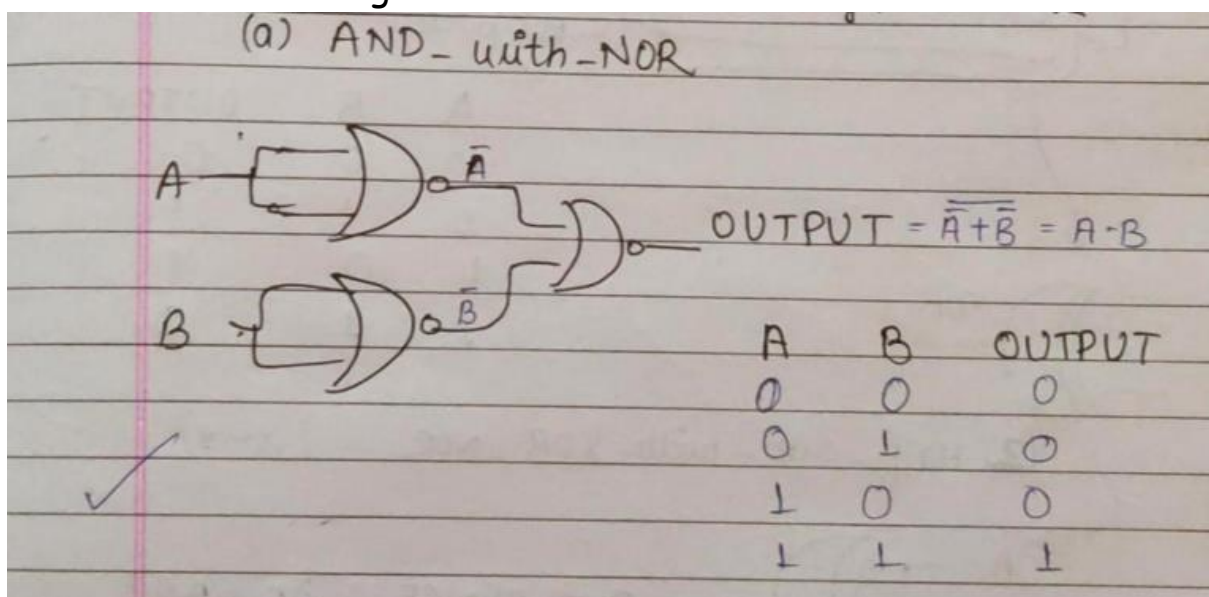 (a) AND-with-NOR
A
Ā
OUTPUT = \overline{\overline{A}+\overline{B}} = A·B
B
B̄
A B OUTPUT
0 0 0
0 1 0
1 0 0
1 1 1